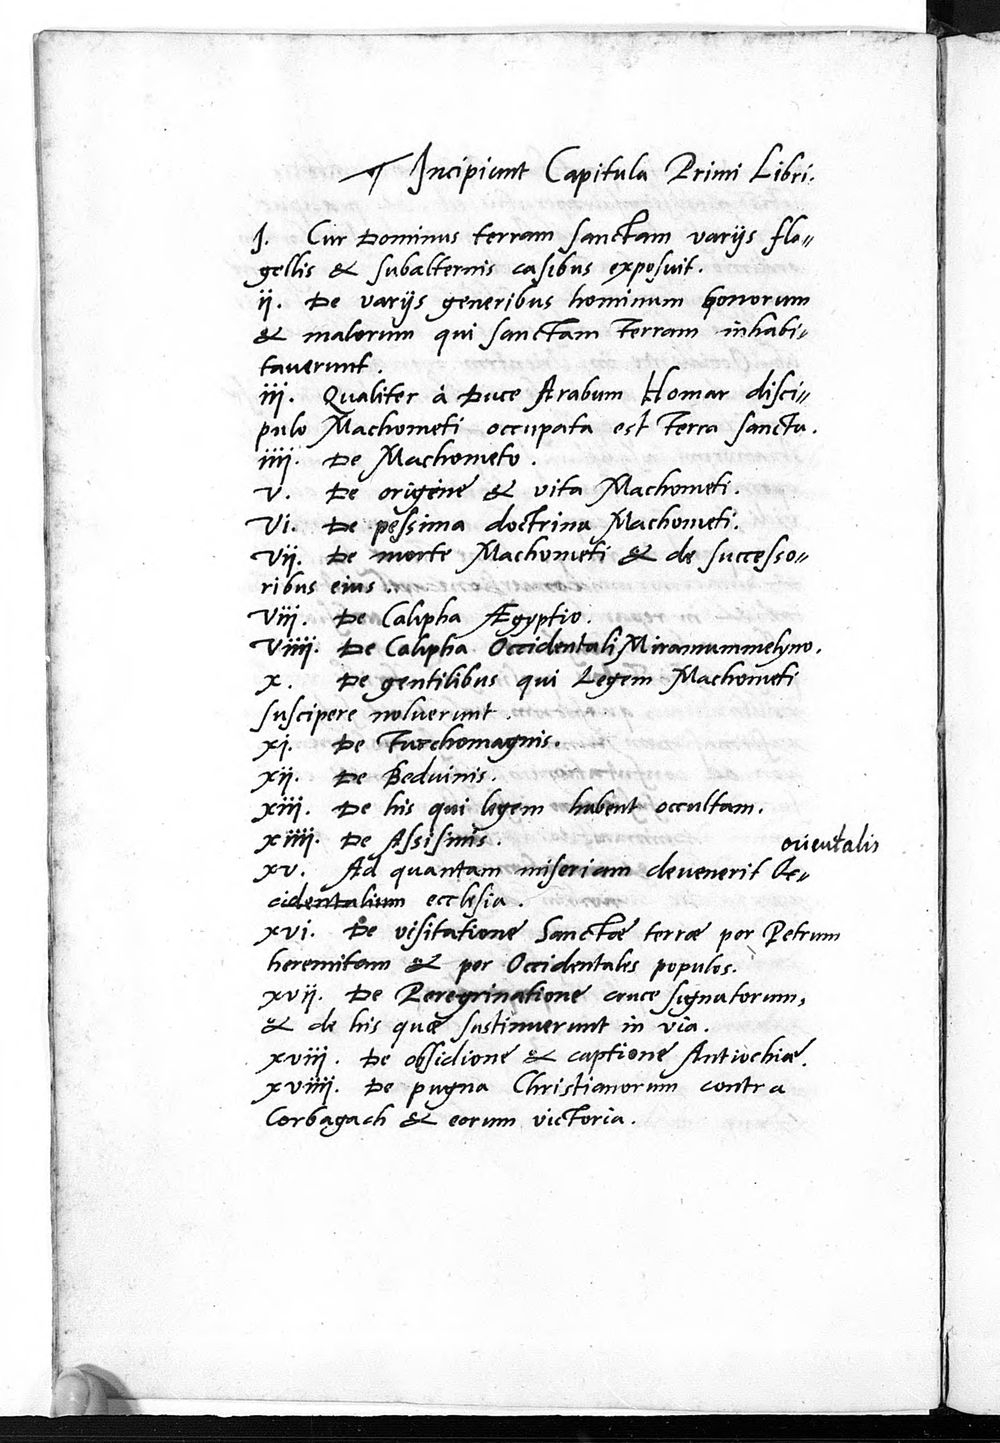 ¶ Incipiunt Capitula Primi Libri.
I. Cur Dominus terram sanctam varijs fla=
gellis & subalternis casibus exposuit.
ii. De varijs generibus hominum bonorum
& malorum qui sanctam terram inhabi=
taverunt.
iii. Qualiter à Duce Arabum Homar disci=
pulo Machometi occupata est terra sancta.
iiii. De Machometo.
v. De origine & vita Machometi.
Vi. De pessima doctrina Machometi.
Vii. De morte Machometi & de successo=
ribus eius.
Viii. De Calipha Ægyptio.
Viiii. De Calipha Occidentali Miramummelyno.
x. De gentilibus qui Legem Machometi
suscipere noluerunt.
xi. De Turchomagnis.
xii. De Beduinis.
xiii. De his qui legem habent occultam.
xiiii. De Assisinis.
orientalis
xv. Ad quantam miseriam devenerit Oc=
cidentalium ecclesia.
xvi. De visitatione Sanctæ terræ per Petrum
heremitam & per Occidentales populos.
xvii. De Peregrinatione cruce signatorum,
& de his quæ sustinuerunt in via.
xviii. De obsidione & captione Antiochiæ.
xviiii. De pugna Christianorum contra
Corbagach & eorum victoria.